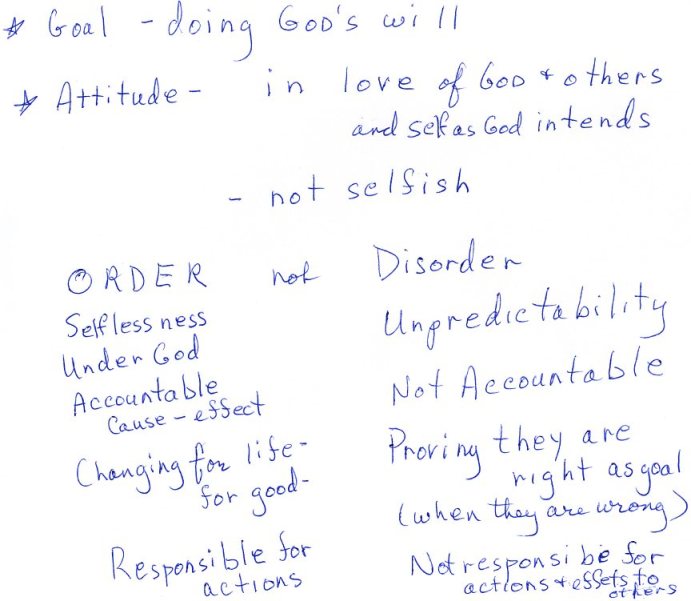 ☆ Goal - doing God's will
☆ Attitude - in love of God + others
and self as God intends
- not selfish
ORDER not Disorder
Selflessness
Unpredictability
Under God
Accountable
Not Accountable
Cause - effect
Changing for life -
for good -
Proving they are
right as goal
(when they are wrong)
Responsible for
actions
Not responsibe for
actions + essets to
others